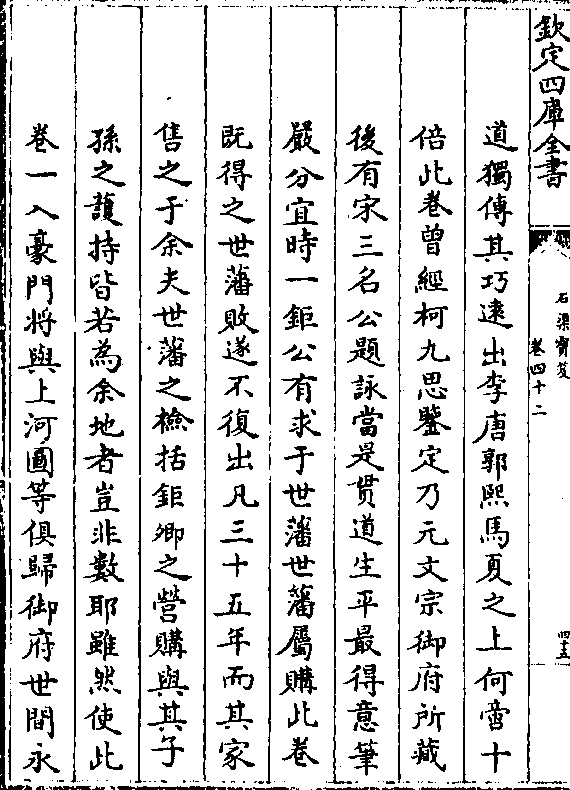 欽定四庫全書
石渠寶笈
卷四十二
四十五
道獨傳其巧遠出李唐郭熙馬夏之上何啻十
倍此卷曾經柯九思鑒定乃元文宗御府所藏
後有宋三名公題詠當是貫道生平最得意筆
嚴分宜時一鉅公有求于世蕃世蕃屬購此卷
既得之世蕃敗遂不復出凡三十五年而其家
售之于余夫世蕃之檢括鉅卿之營購與其子
孫之護持皆若為余地者豈非數耶雖然使此
卷一入豪門將與上河圖等俱歸御府世間永